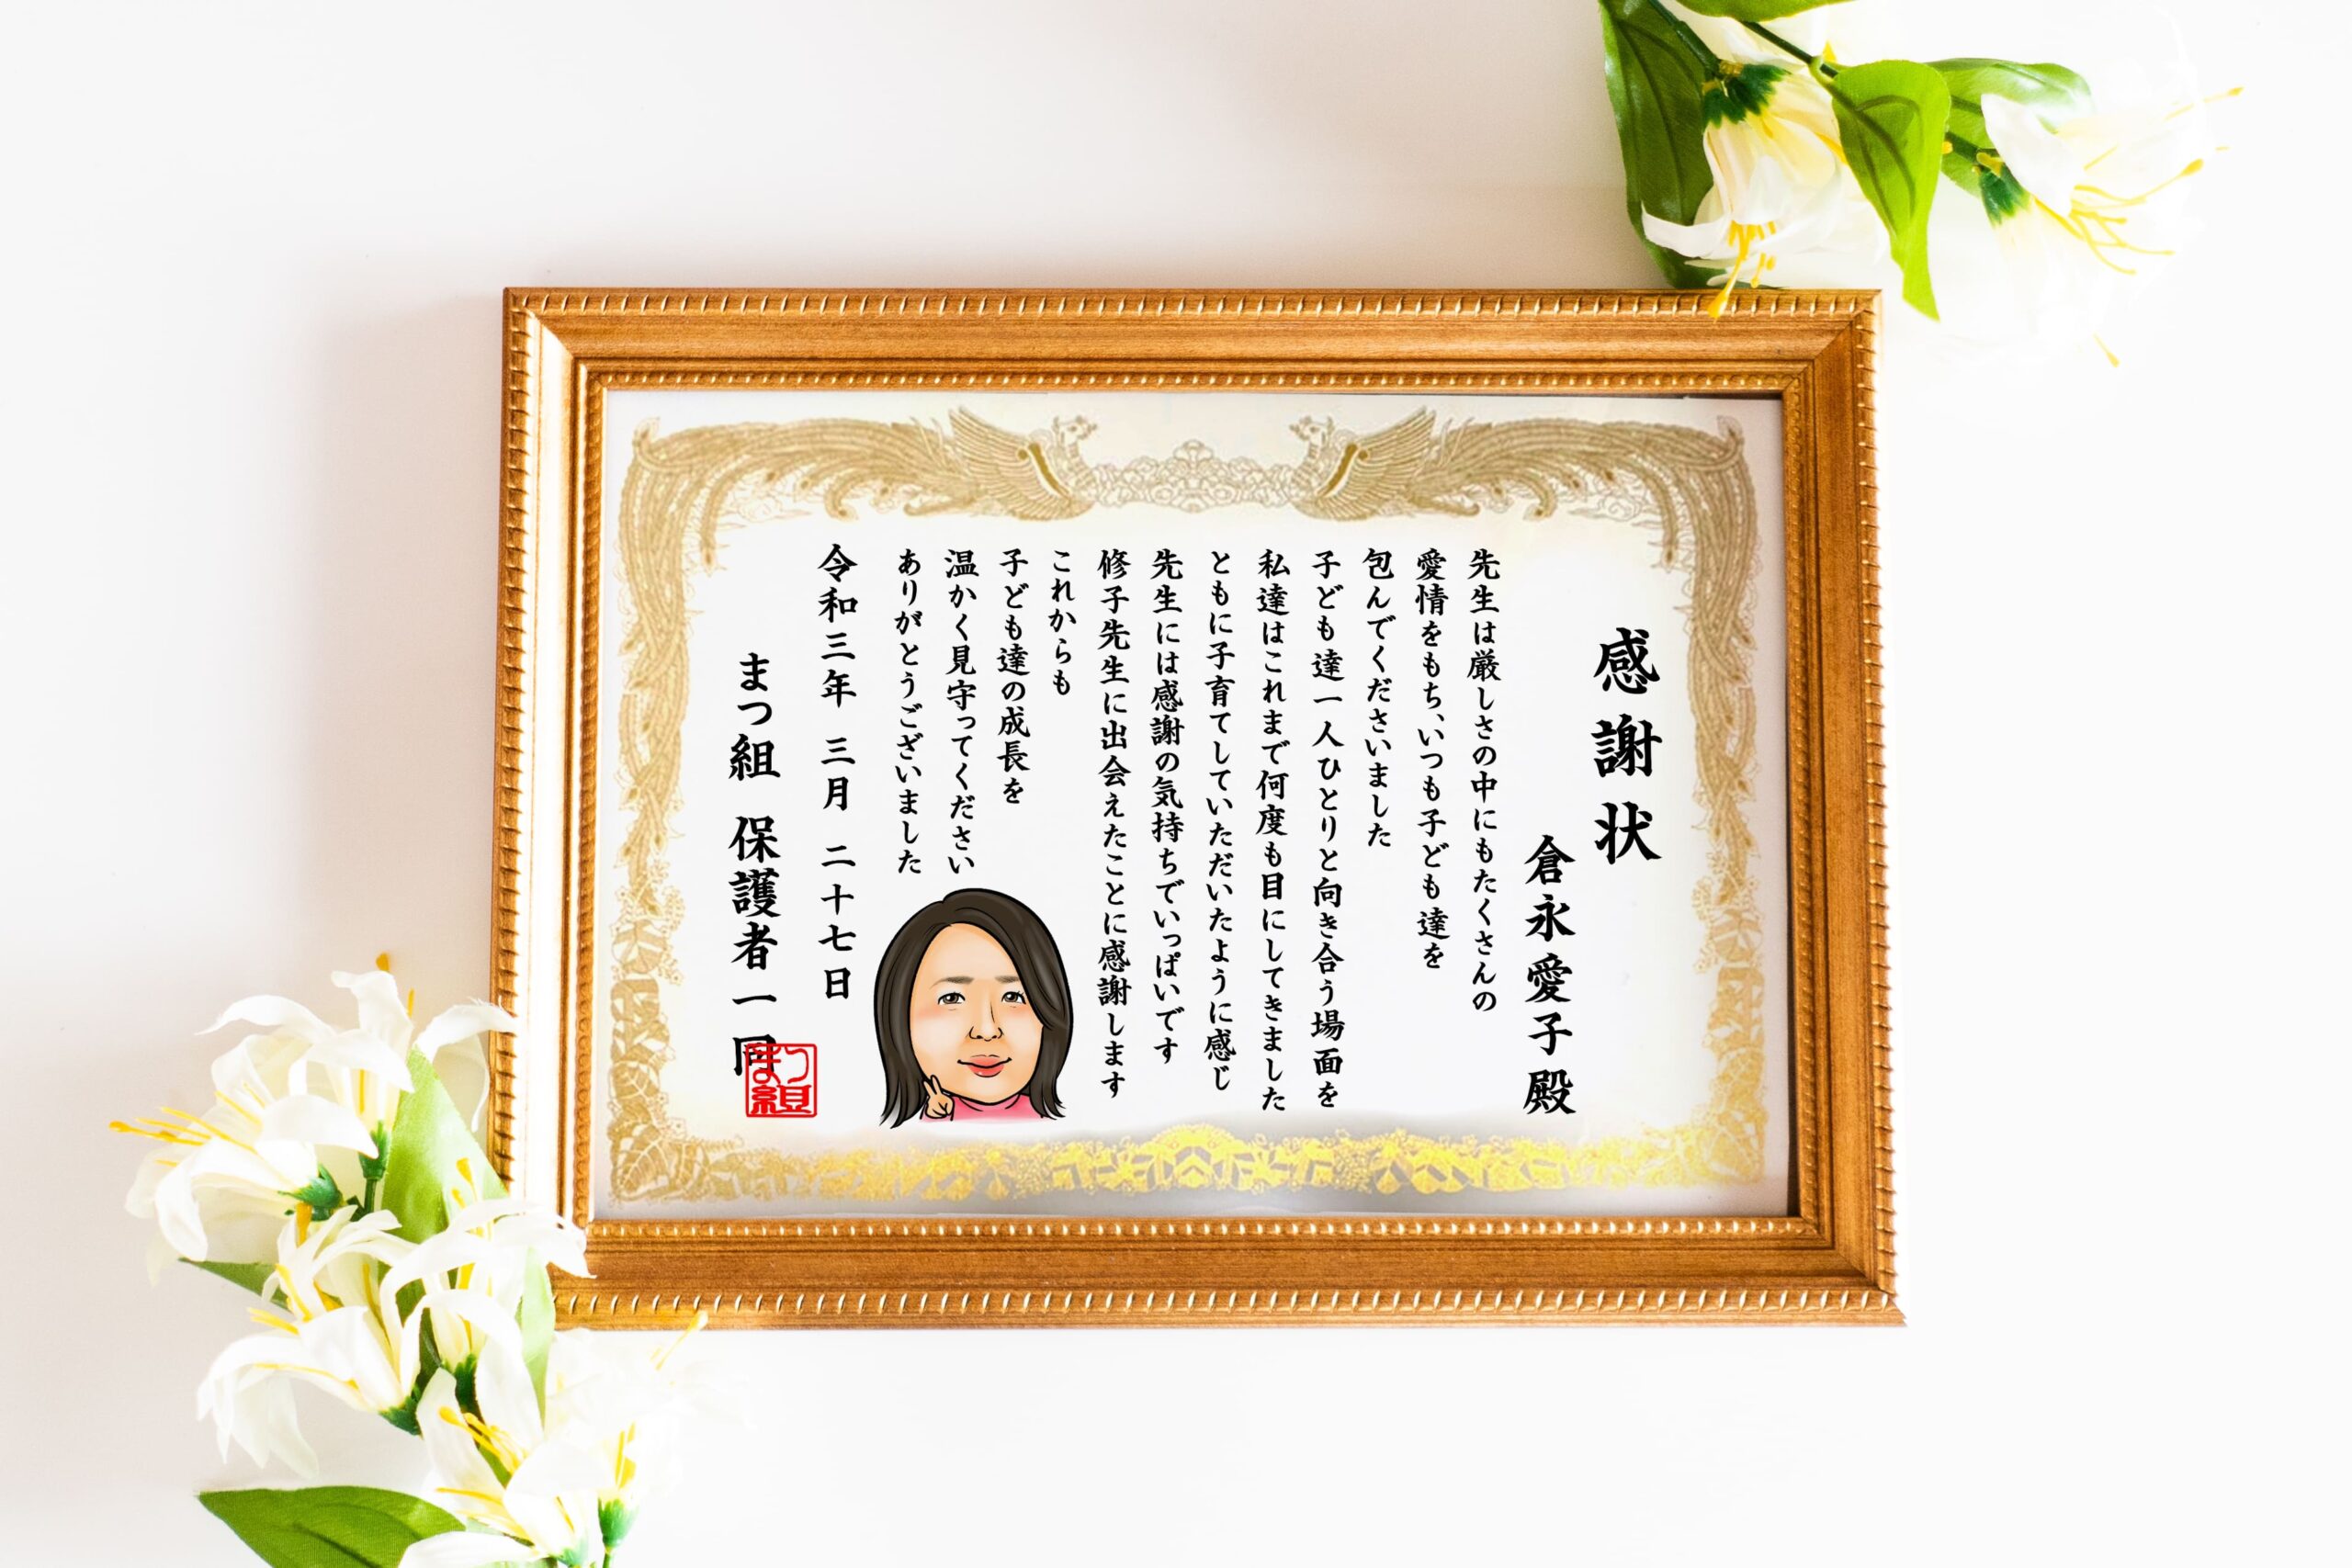 感謝状
倉永愛子殿
先生は厳しさの中にもたくさんの
愛情をもち、いつも子ども達を
包んでくださいました
子ども達一人ひとりと向き合う場面を
私達はこれまで何度も目にしてきました
ともに子育てしていただいたように感じ
先生には感謝の気持ちでいっぱいです
修子先生に出会えたことに感謝します
これからも
子ども達の成長を
温かく見守ってください
ありがとうございました
令和三年 三月 二十七日
まつ組 保護者一同
まつ組